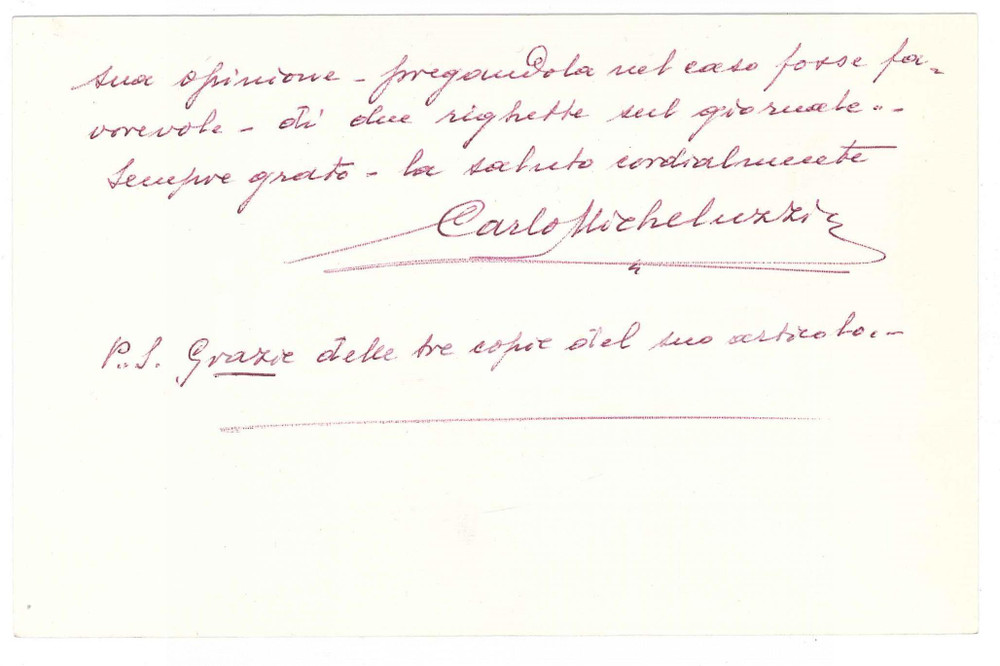 sua opinione - pregandola nel caso fosse fa=
vorevole - di due righette sul giornale..-
Sempre grato - la saluto cordialmente
Carlo Micheluzzi
P.S. Grazie delle tre copie del suo articolo.-